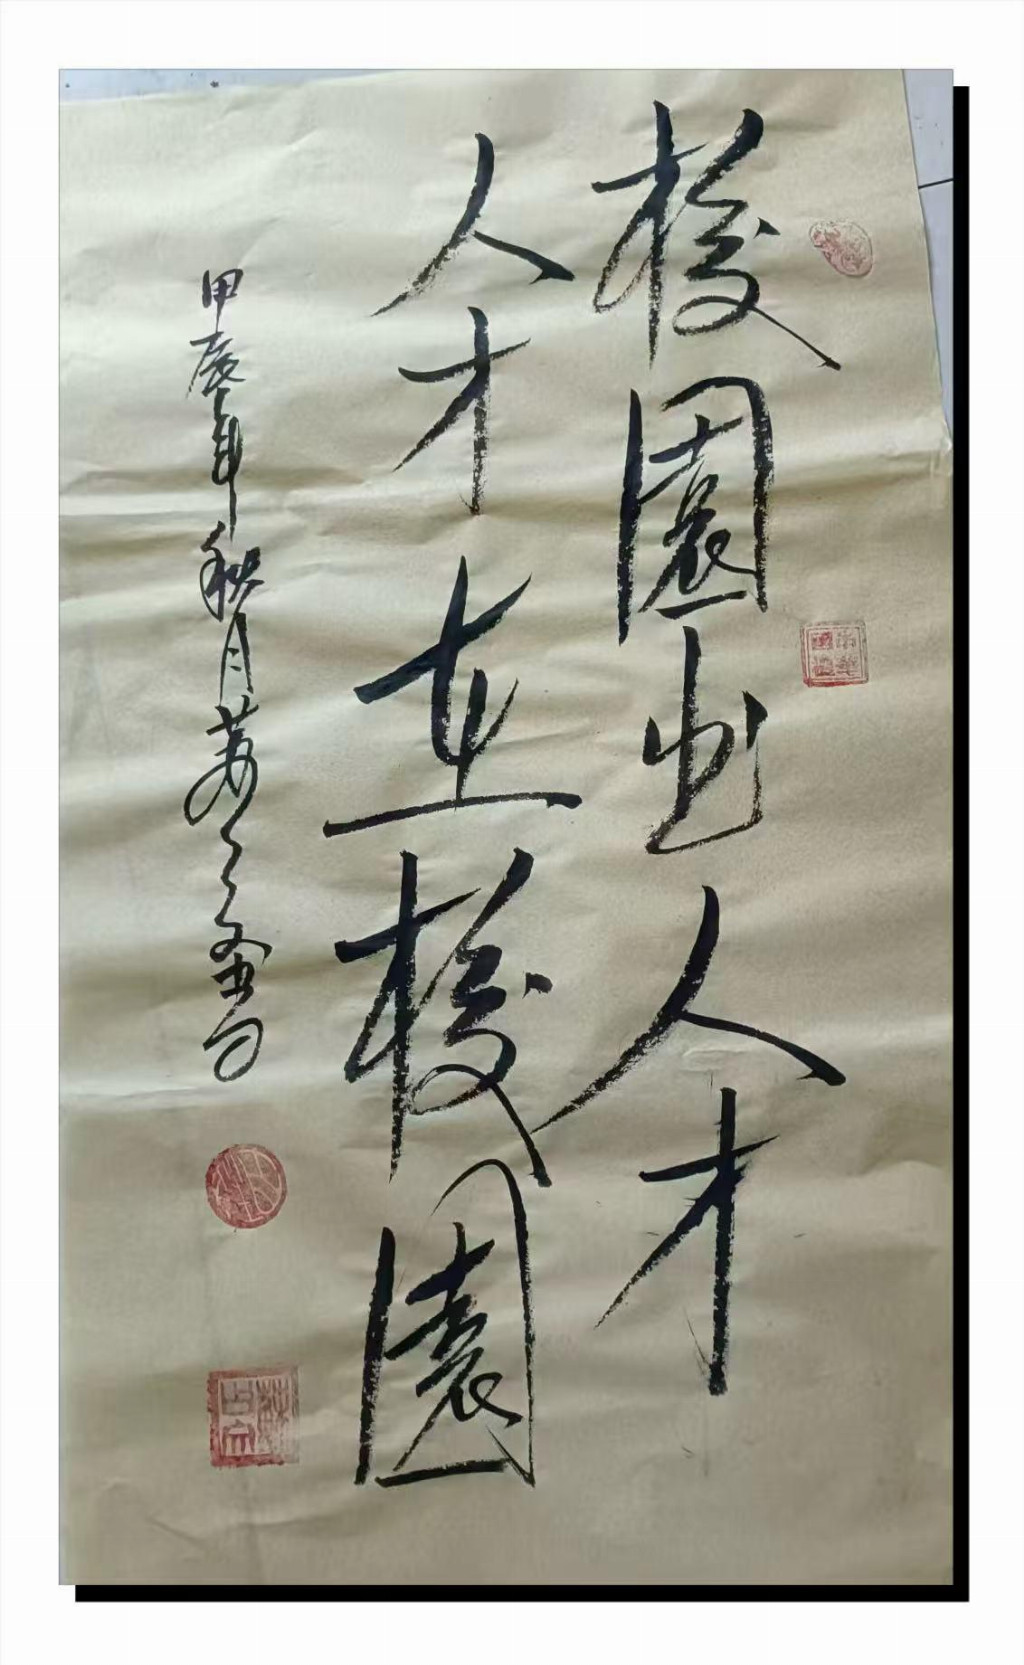 校園出人才
人才在校園
甲辰年秋月